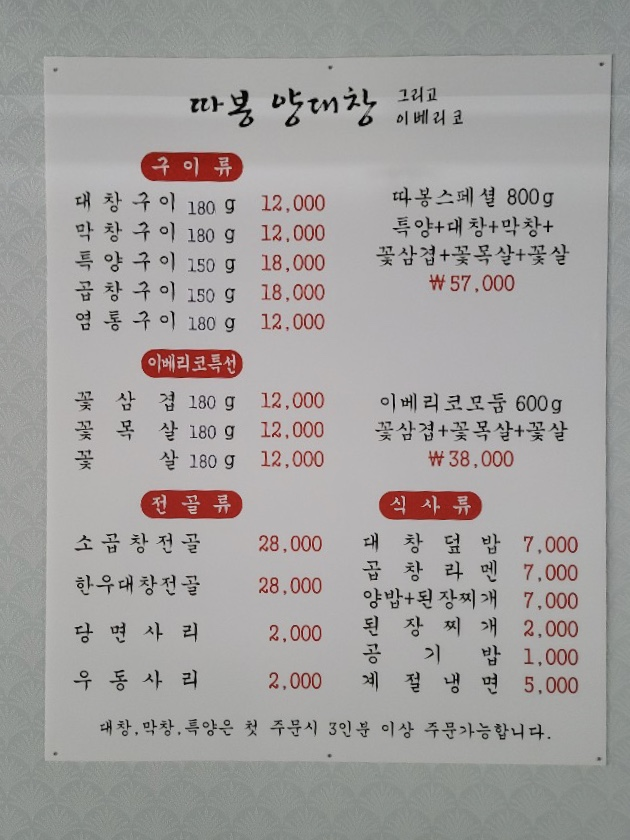 따봉 양대창 그리고
이베리코
구이류
대창구이 180 g 12,000
막창구이 180 g 12,000
특양구이 150 g 18,000
곱창구이 150 g 18,000
염통구이 180 g 12,000
따봉스페셜 800g
특양+대창+막창+
꽃삼겹+꽃목살+꽃살
₩57,000
이베리코특선
꽃삼겹 180 g 12,000
꽃목살 180 g 12,000
꽃살 180 g 12,000
이베리코모듬 600g
꽃삼겹+꽃목살+꽃살
₩38,000
전골류
소곱창전골 28,000
한우대창전골 28,000
당면사리 2,000
우동사리 2,000
식사류
대창덮밥 7,000
곱창라멘 7,000
양밥+된장찌개 7,000
된장찌개 2,000
공기밥 1,000
계절냉면 5,000
대창,막창,특양은 첫 주문시 3인분 이상 주문가능합니다.